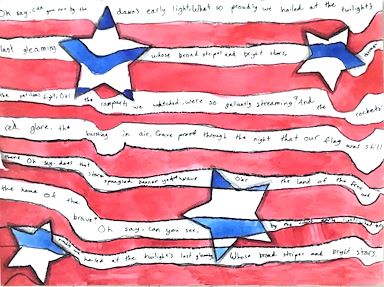 Oh say, can you see by the dawns early light, What so proudly we hailed at the twilight's
last gleaming whose broad stripes and bright stars,
the perilous fight, O'er the ramparts we watched, were so gallantly streaming? And the rockets
red glare, the bursting in air, Gave proof through the night that our flag was still
there Oh say, does that star spangled banner yet wave O'er the land of the free and
the home of the brave? Oh say, can you see, by the
hailed at the twilight's last gleaming, Whose broad stripes and bright stars,